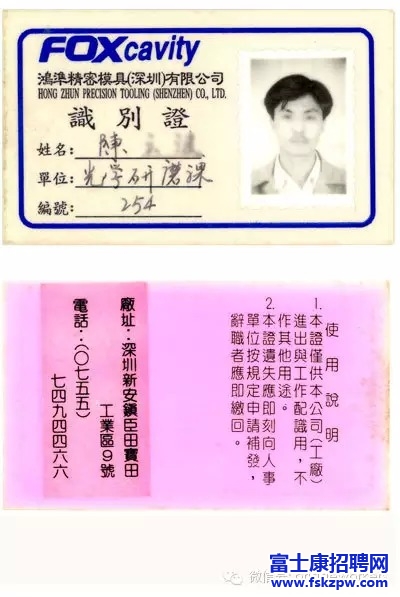 FOXcavity
鴻準精密模具(深圳)有限公司
HONG ZHUN PRECISION TOOLING (SHENZHEN) CO., LTD.
識別證
姓名：陳
單位：光學研磨課
編號：254
使用說明
1.本證僅供本公司(工廠)
進出與工作配識用，不
作其他用途。
2.本證遺失應即刻向人事
單位按規定申請補發，
辭職者應即繳回。
廠址：深圳新安鎮臣田寶田
工業區9號
電話：(〇七五五)
七四九四四六六
微信号:
富士康招聘网
www.fskzpw.com